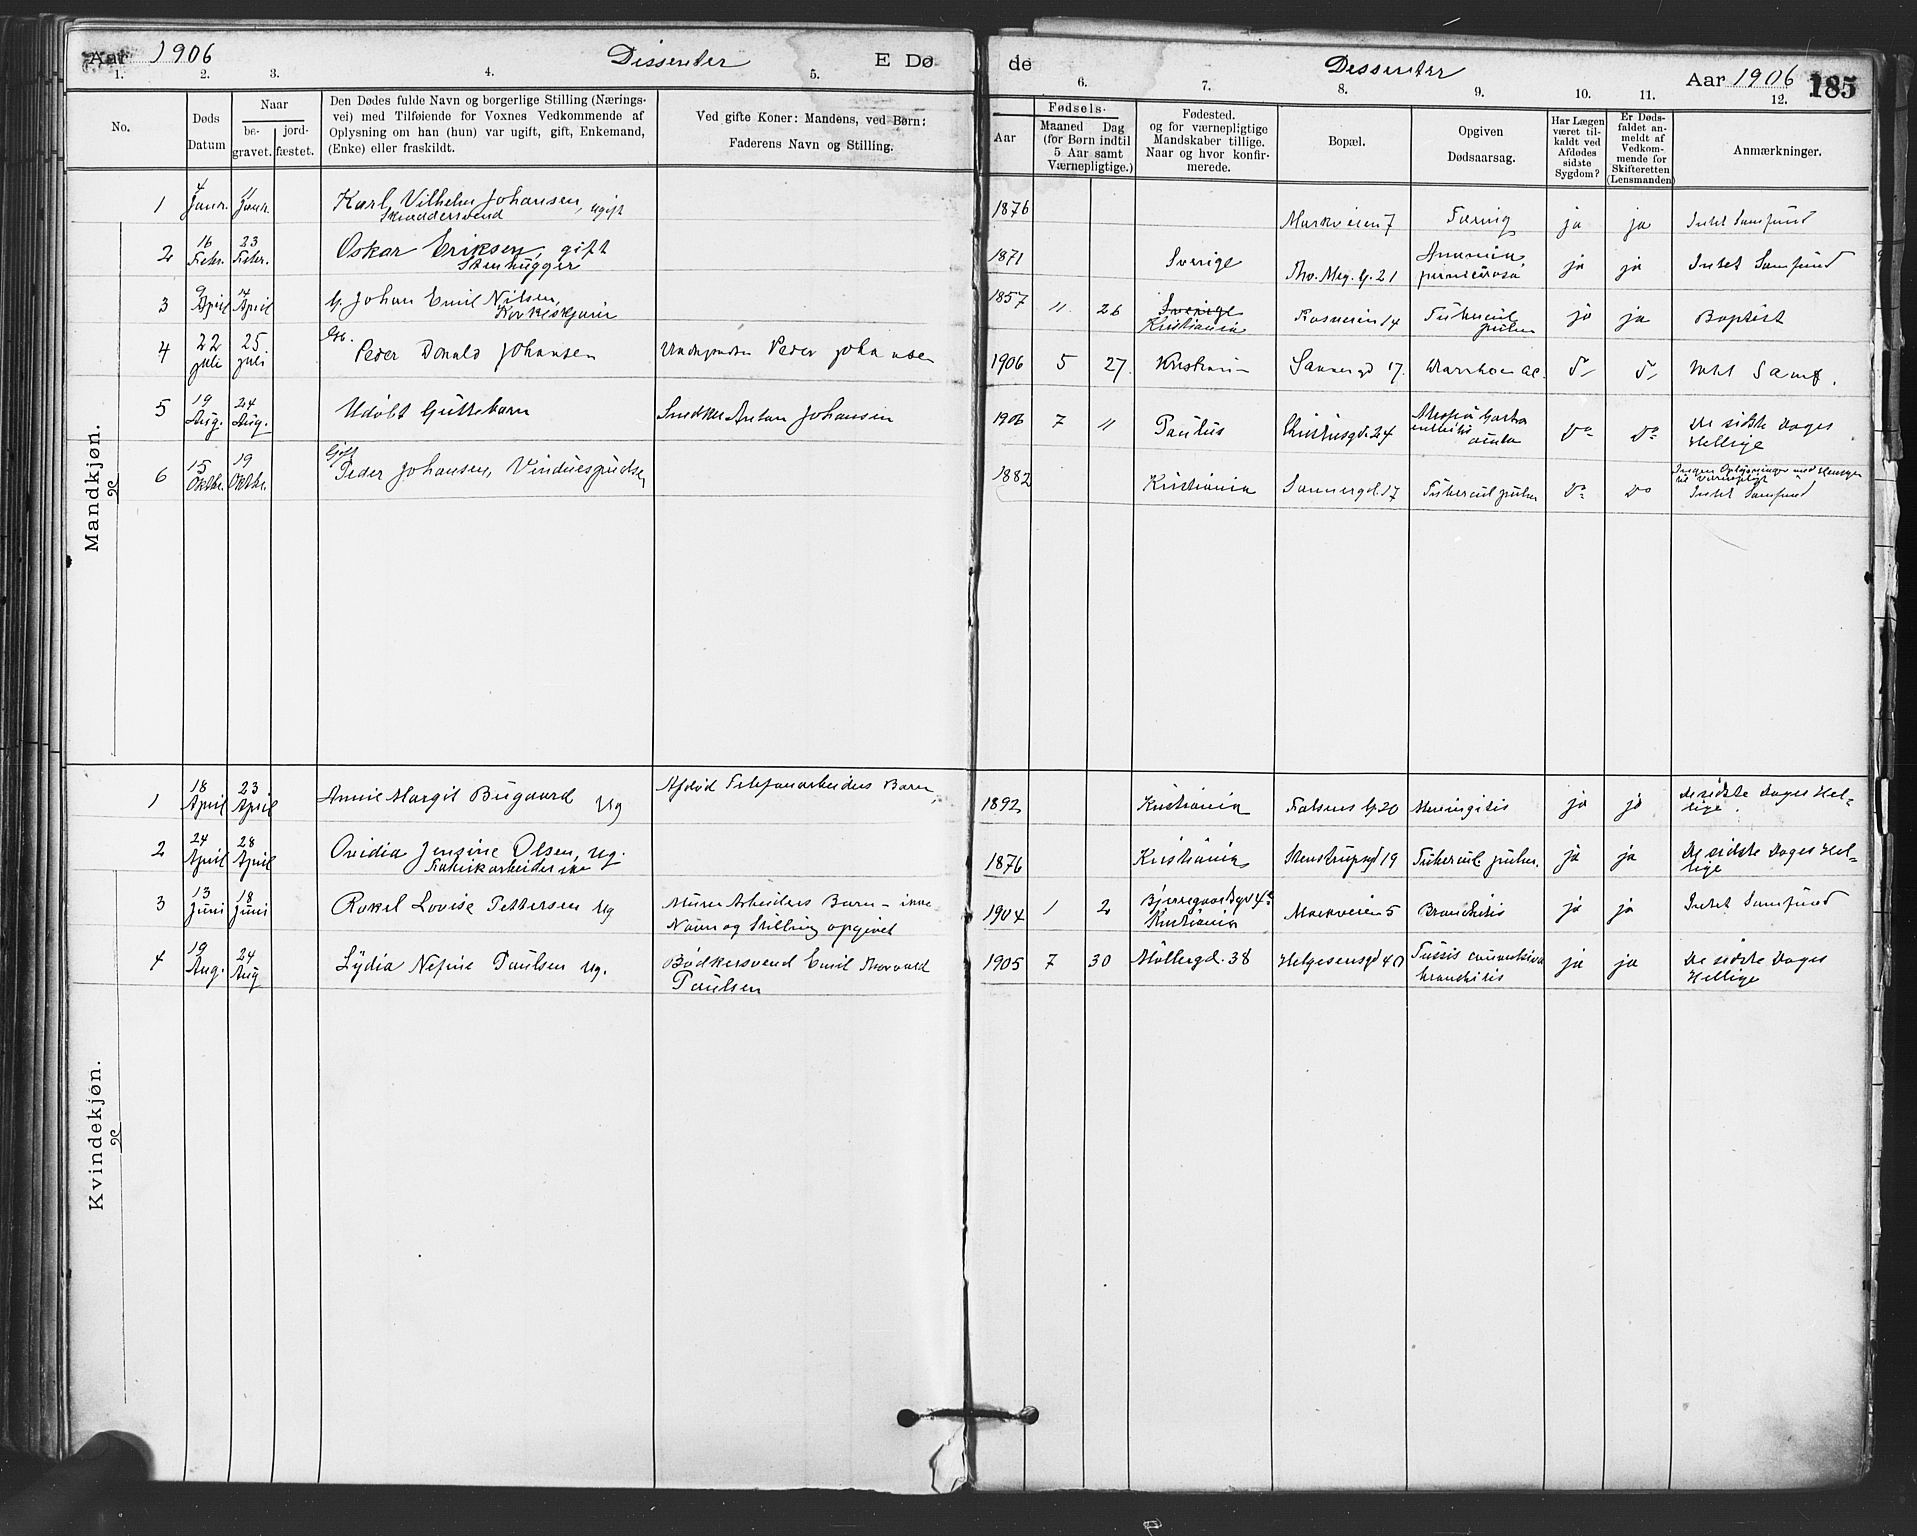 Aar 1906 Dissenter E Dø
de Dissenter Aar 1906 185
1. 2. 3. 4. 5.
6. 7. 8. 9. 10. 11. 12.
No.
Døds Datum
Naar
be- gravet. jord- fæstet.
Den Dødes fulde Navn og borgerlige Stilling (Nærings-
vei) med Tilføiende for Voxnes Vedkommende af
Oplysning om han (hun) var ugift, gift, Enkemand,
(Enke) eller fraskildt.
Ved gifte Koner: Mandens, ved Børn:
Faderens Navn og Stilling.
Fødsels-
Aar
Maaned Dag
(for Børn indtil
5 Aar samt
Værnepligtige.)
Fødested.
og for værnepligtige
Mandskaber tillige.
Naar og hvor konfir-
merede.
Bopæl.
Opgiven
Dødsaarsag.
Har Lægen
været til-
kaldt ved
Afdødes
sidste
Sygdom?
Er Døds-
faldet an-
meldt af
Vedkom-
mende for
Skifteretten
(Lensmanden)
Anmærkninger.
Mandkjøn.
1 4 Janr. 11 Janr. Karl Vilhelm Johansen, ugift
Skræddersvend
1876 Markveien 7 Tæring ja ja Intet Samfund
2 16 Febr. 23 Febr. Oskar Eriksen, gift
Stenhugger
1871 Sverige Thv. Mey. G. 21 Anæmia perniciosa ja ja Intet Samfund
3 9 April 14 April G. Johan Emil Nilsen,
Korkeskjærer
1857 11 26 Sverige
Kristiania Rosveien 14 Tubercul pulm ja ja Baptist
4 22 juli 25 juli Peder Donald Johansen Peder Johansen
1906 5 27. Kristiania Sannergd 17. Intet Samf.
5 19 Aug. 24 Aug. Udøbt Guttebarn Snedker Anton Johansen
1906 7 11 Paulus Christiesgd. 24 Do Do De sidste Dages
Hellige
6 15 Oktbr. 19 Oktbr. Gift
Peder Johansen, Vinduespudser
1882 Kristiania Sannergd. 17 Tubercul pulm Do Do Ingen Oplysninger med Hensyn
til Værnepligt
Intet Samfund
Kvindekjøn.
1 18 April 23 April Annie Margit Bugaard Ug Afdød Telefonarbeiders Barn
1892 Kristiania Falsens G. 20 Meningitis ja ja De sidste Dages Hel=
lige.
2 24 April 28 April Ovidia Jensine Olsen, ug.
Fabrikarbeiderske
1876 Kristiania Stenstrupsgd 19 Tubercul pulm. ja ja De sidste Dages Hel=
lige
3 13 Juni 18 Juni Rakel Lovise Pettersen ug Murer Arbeiders Barn – ikke
Navn og Stilling opgivet
1904 1 2 Kristiania Markveien 5 Bronchitis ja ja Intet Samfund
4 19 Aug. 24 Aug Lydia Nefine Paulsen ug. Bødkersvend Emil Thorvard
Paulsen
1905 7 30 Møllergd. 38 Helgesensgd 40 Tussis convulsiva
bronchitis ja ja De sidste Dages
Hellige